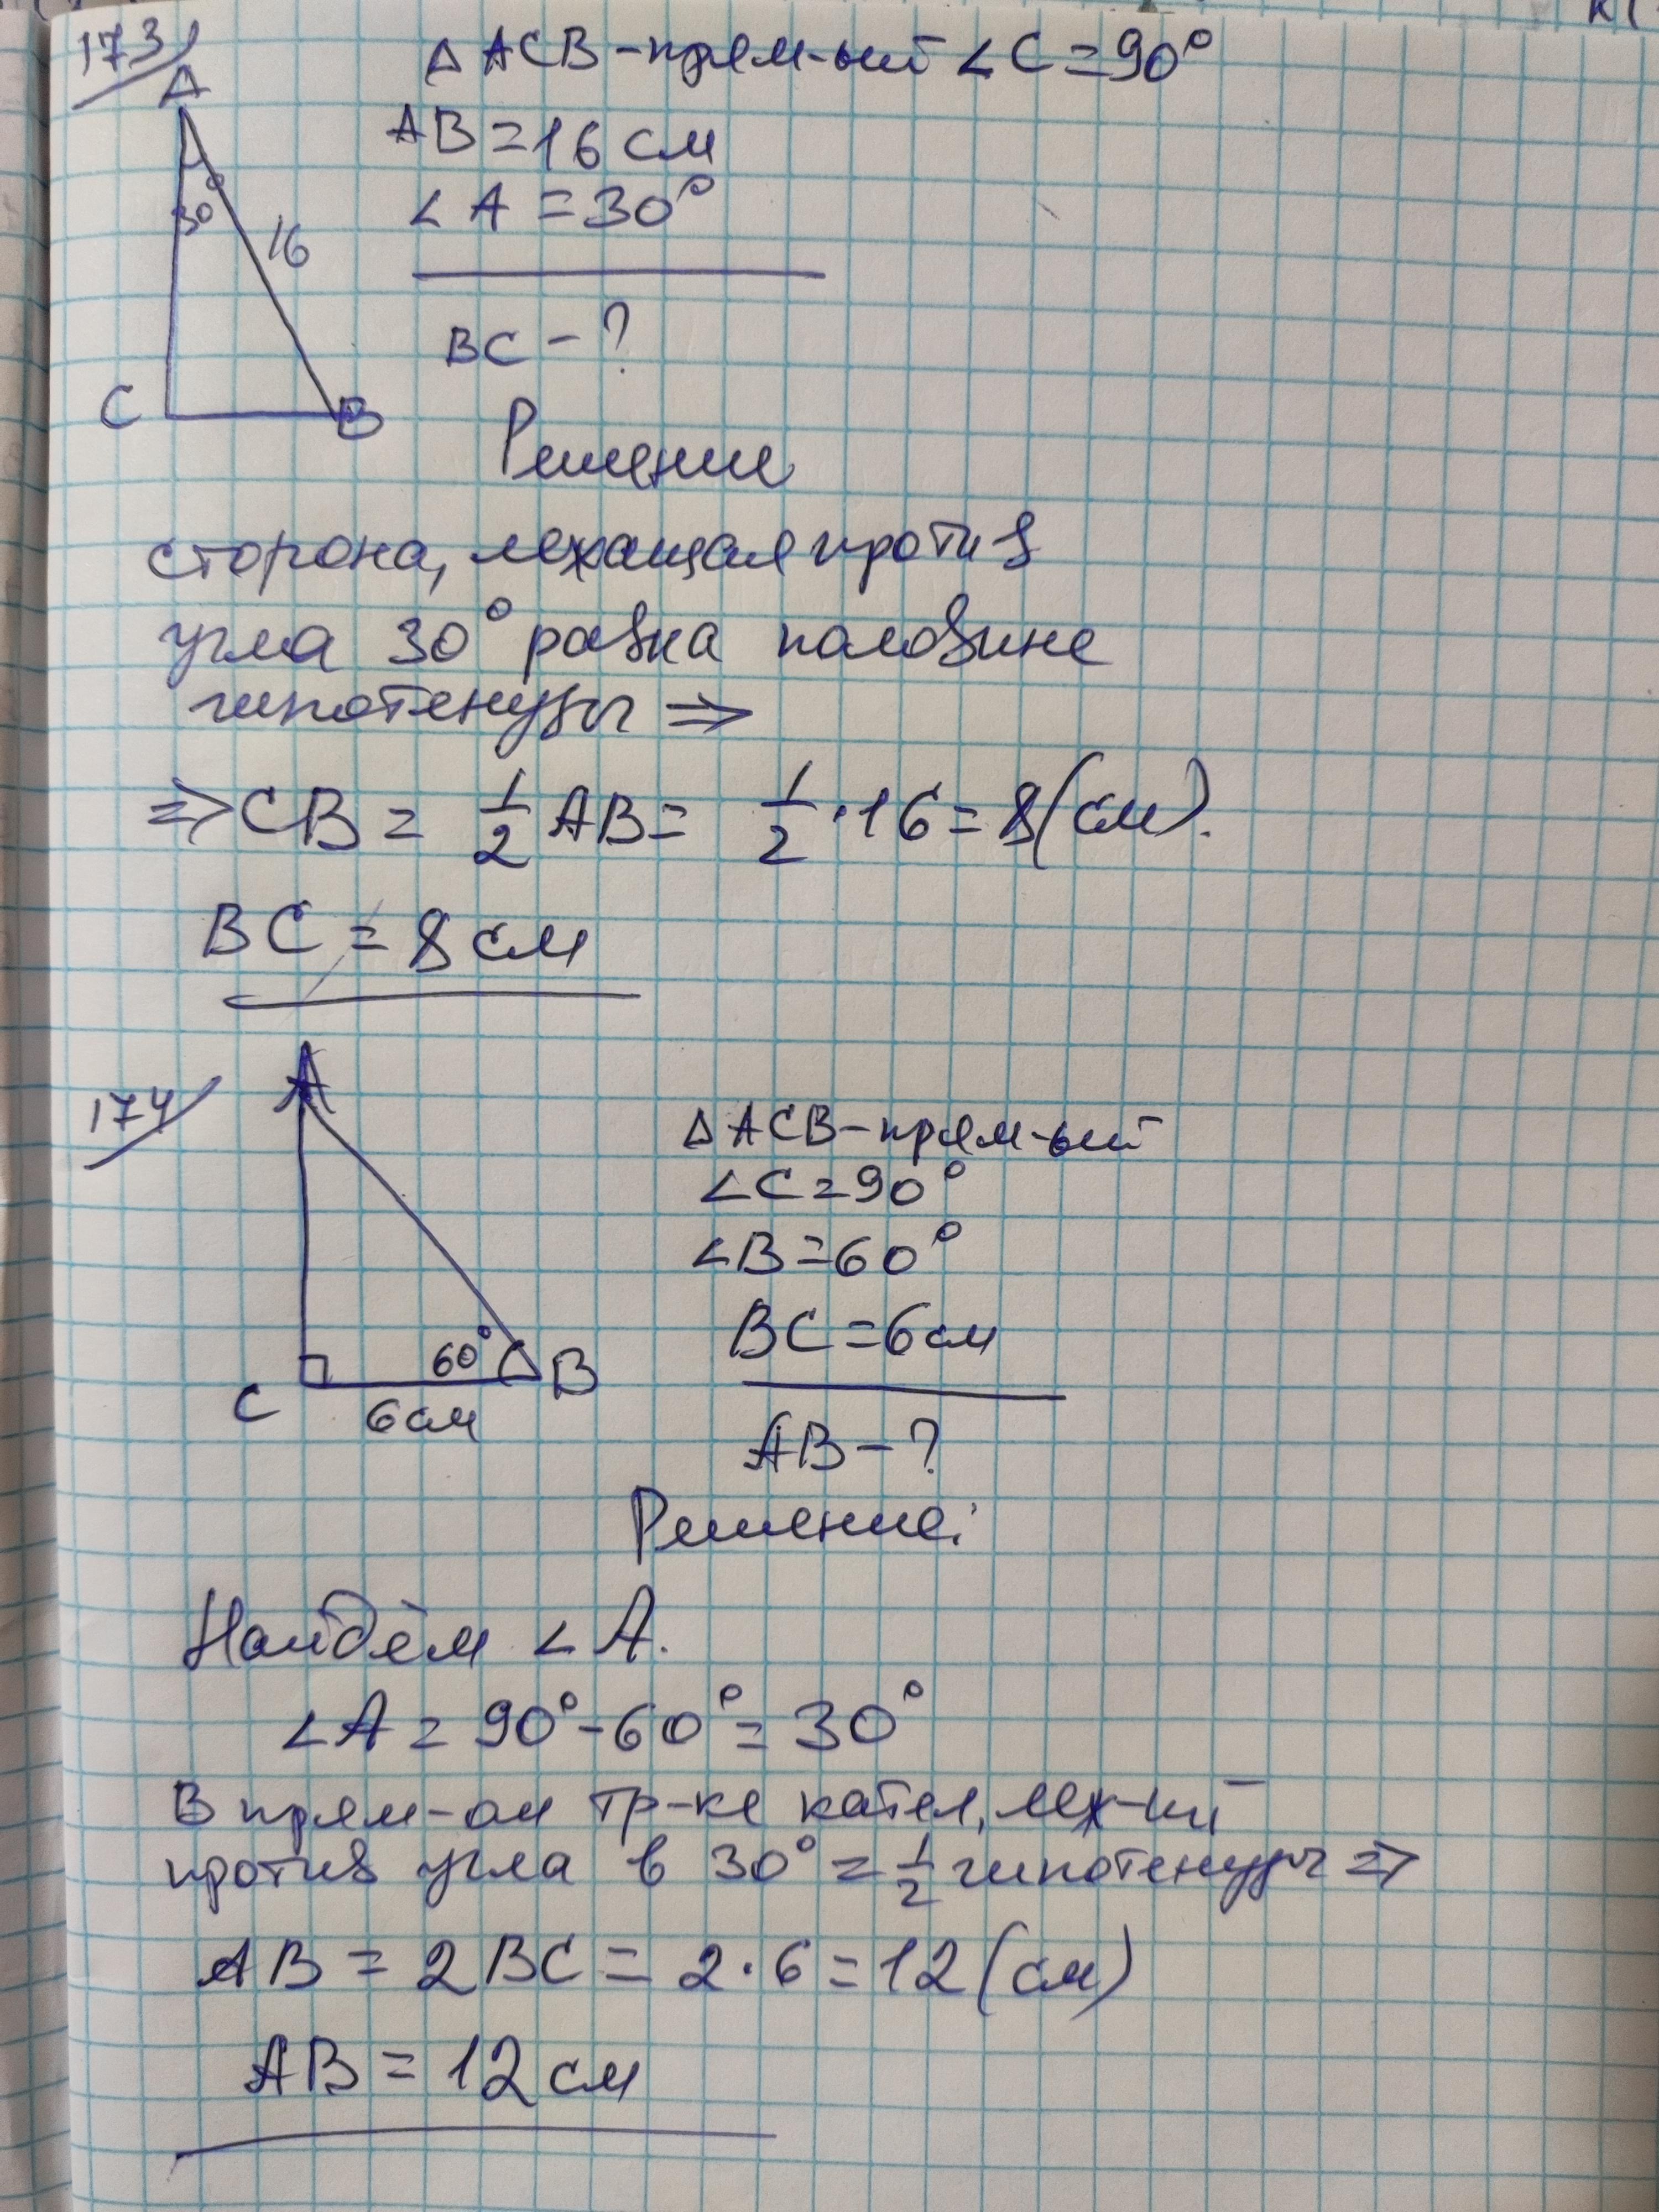 173
△ ACB - прям-ый ∠C = 90°
A
AB = 16 см
∠A = 30°
30°
16
BC - ?
C
B
Решение
сторона, лежащая против
угла 30° равна половине
гипотенузы ⇒
⇒ CB = 1/2 AB = 1/2 · 16 = 8 (см).
BC = 8 см
174
A
△ ACB - прям-ый
∠C = 90°
∠B = 60°
BC = 6 см
60°
C
B
6 см
AB - ?
Решение:
Найдём ∠A.
∠A = 90° - 60° = 30°
В прям-ом тр-ке катет, леж-ий
против угла в 30° = 1/2 гипотенузы ⇒
AB = 2BC = 2 · 6 = 12 (см)
AB = 12 см